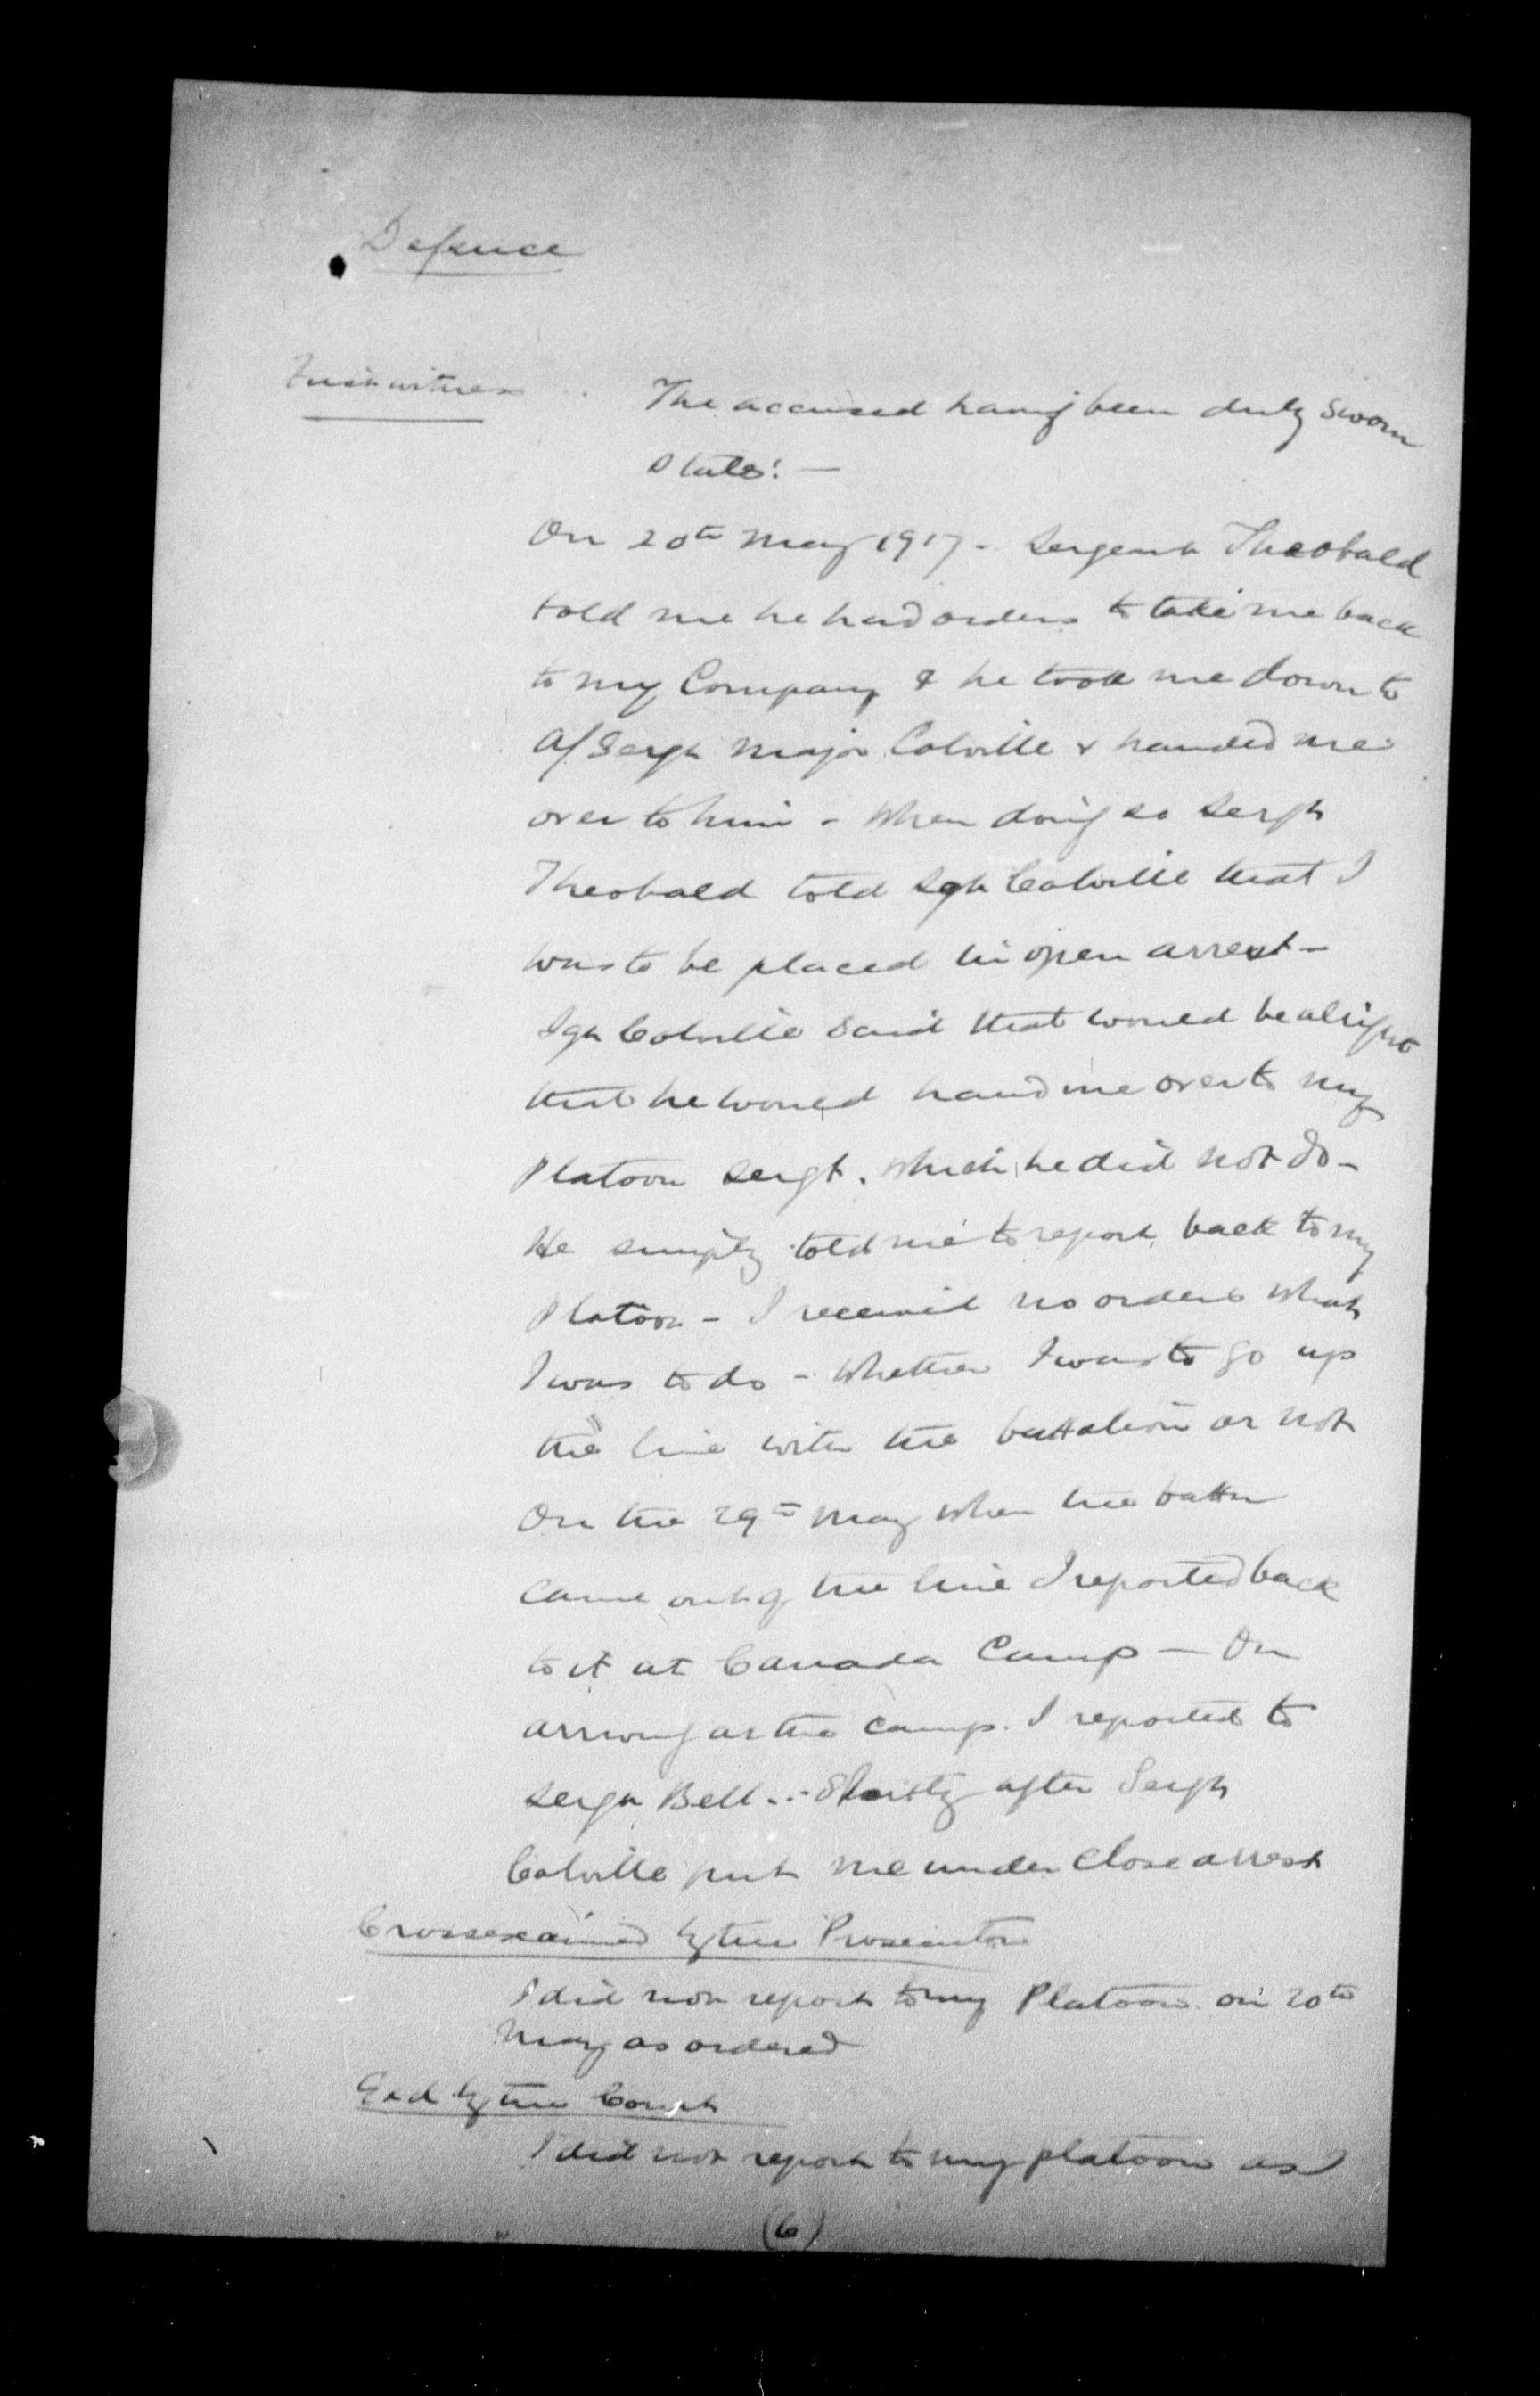 Defence
First witness
The accused having been duly sworn
states: —
On 20th May 1917 - Sergeant Theobald
told me he had orders to take me back
to my Company & he took me down to
A/Sergt Major Colville & handed me
over to him - When doing so Sergt
Theobald told Sgt Colville that I
was to be placed in open arrest -
Sgt Colville said that would be alright
that he would hand me over to my
Platoon Sergt. which he did not do -
He simply told me to report back to my
Platoon - I received no orders what
I was to do - Whether I was to go up
the line with the battalion or not
On the 29th May when the battn
came out of the line I reported back
to it at Canada Camp - On
arriving at the camp. I reported to
Sergt Bell. - Shortly after Sergt
Colville put me under close arrest
Crossexained by the Prosecutor
I did not report to my Platoon on 20th
May as ordered
Exd by the Court
I did not report to my platoon as I
(6)